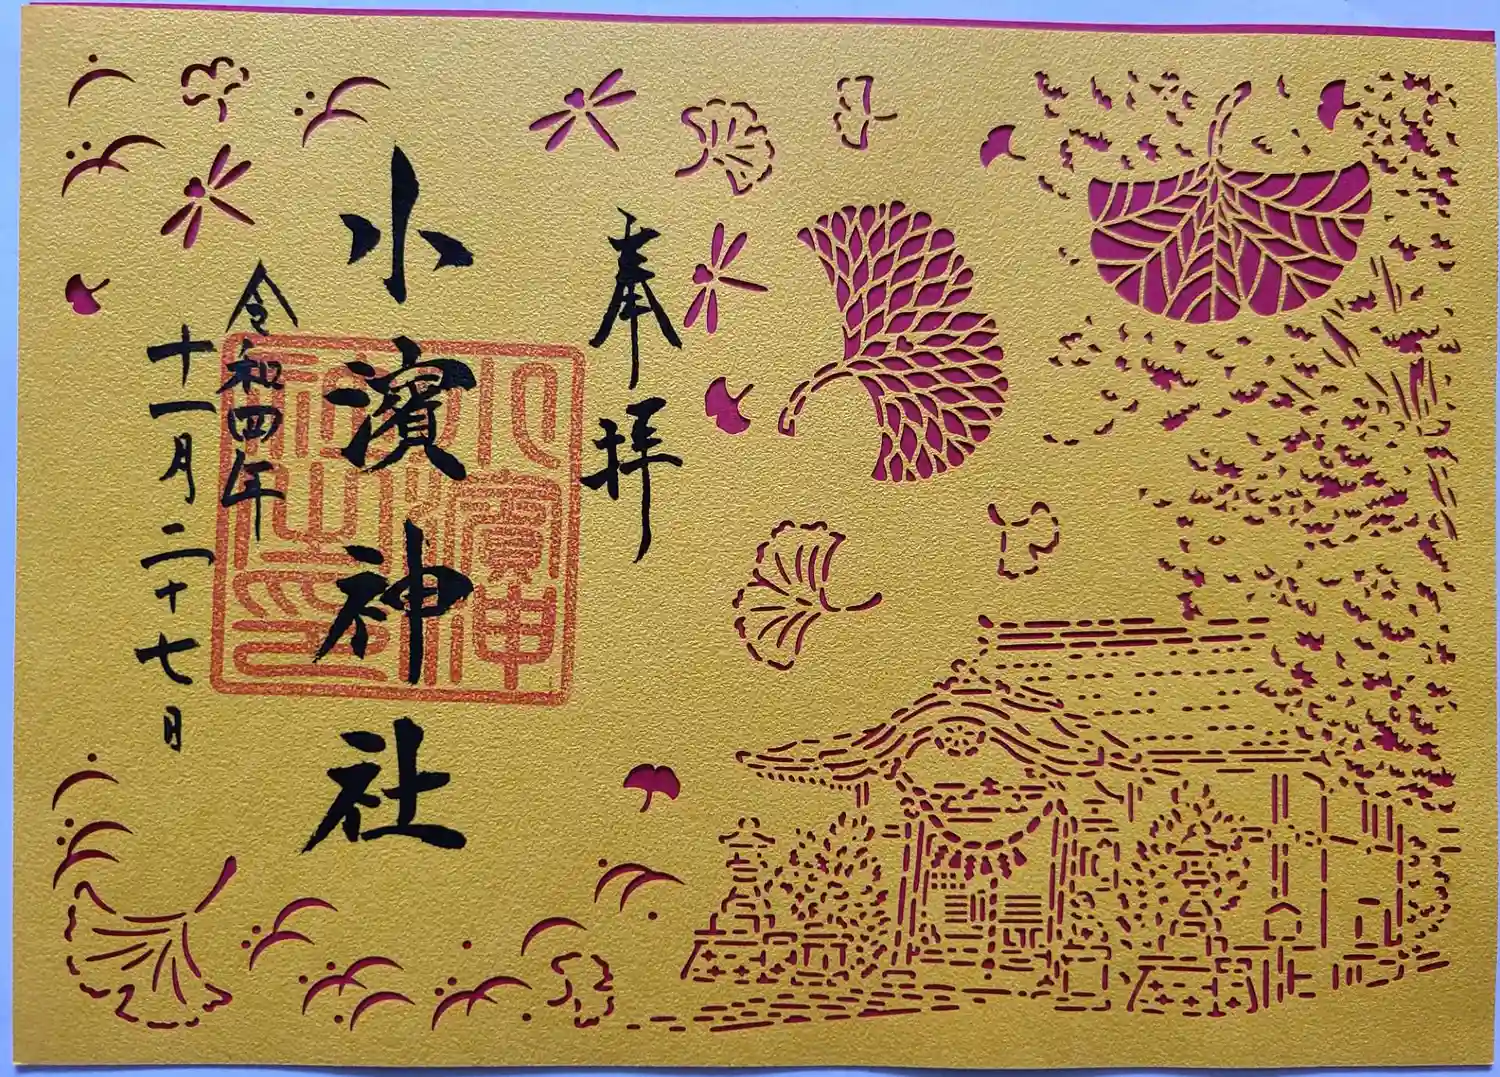 奉拝
小濱神社
小濱神社之印
令和四年
十一月二十七日